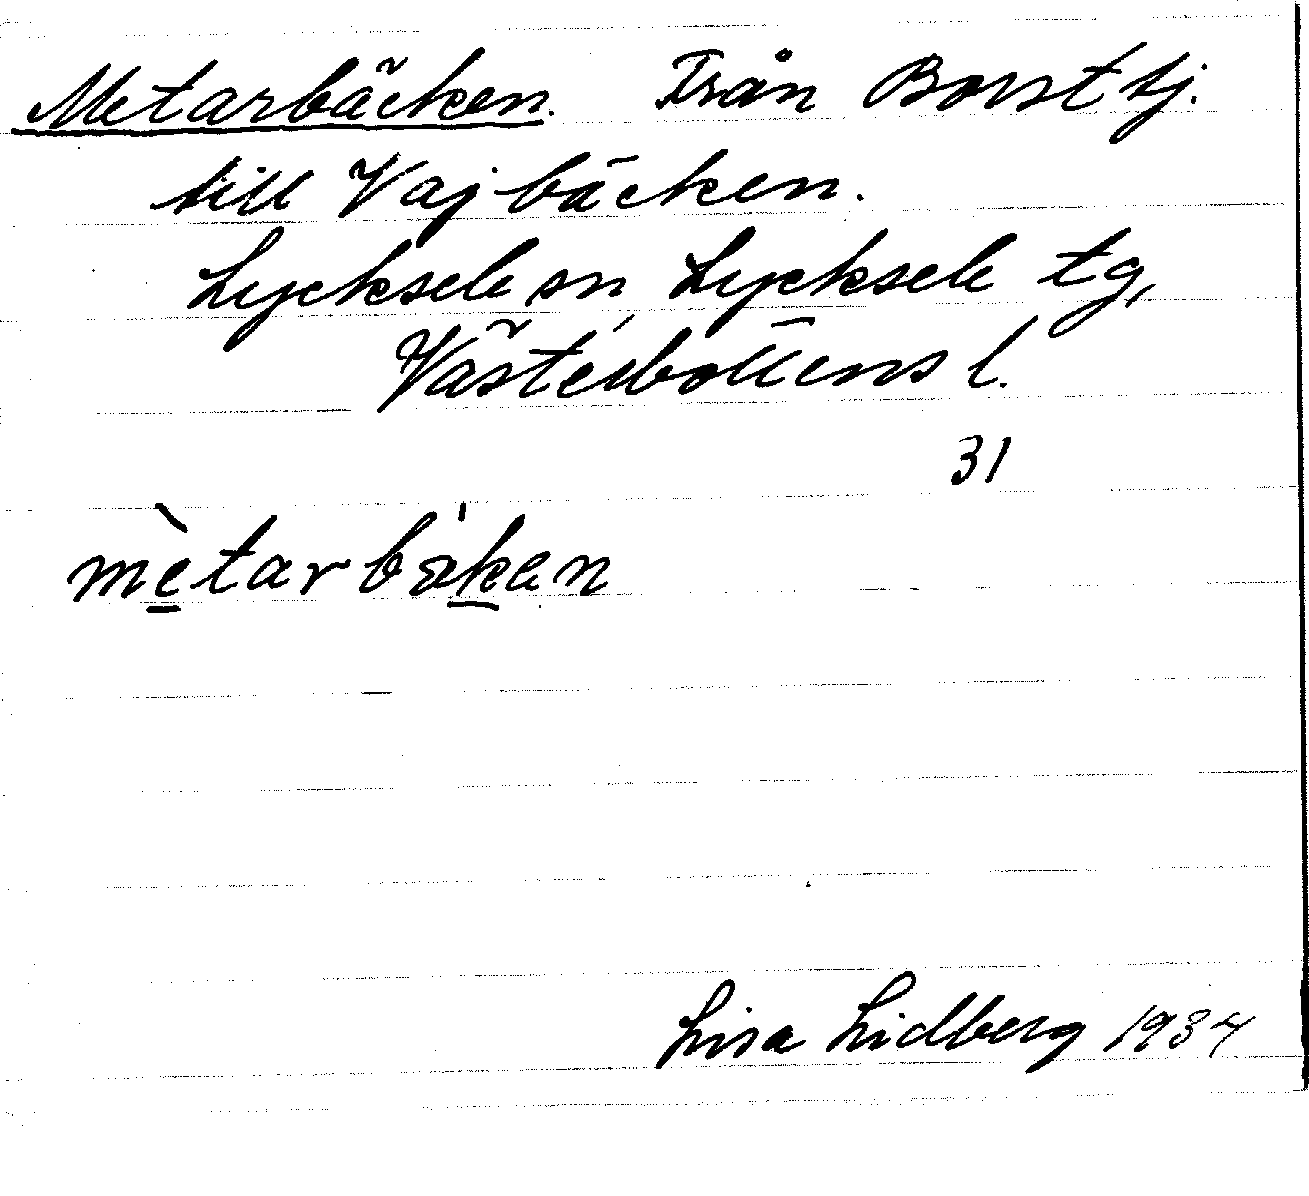 Metarbäcken. Från Borsttj.
till Vajbäcken.
Lycksele sn, Lycksele tg,
Västerbottens l.
31
mètarbäken
Lisa Lidberg 1934